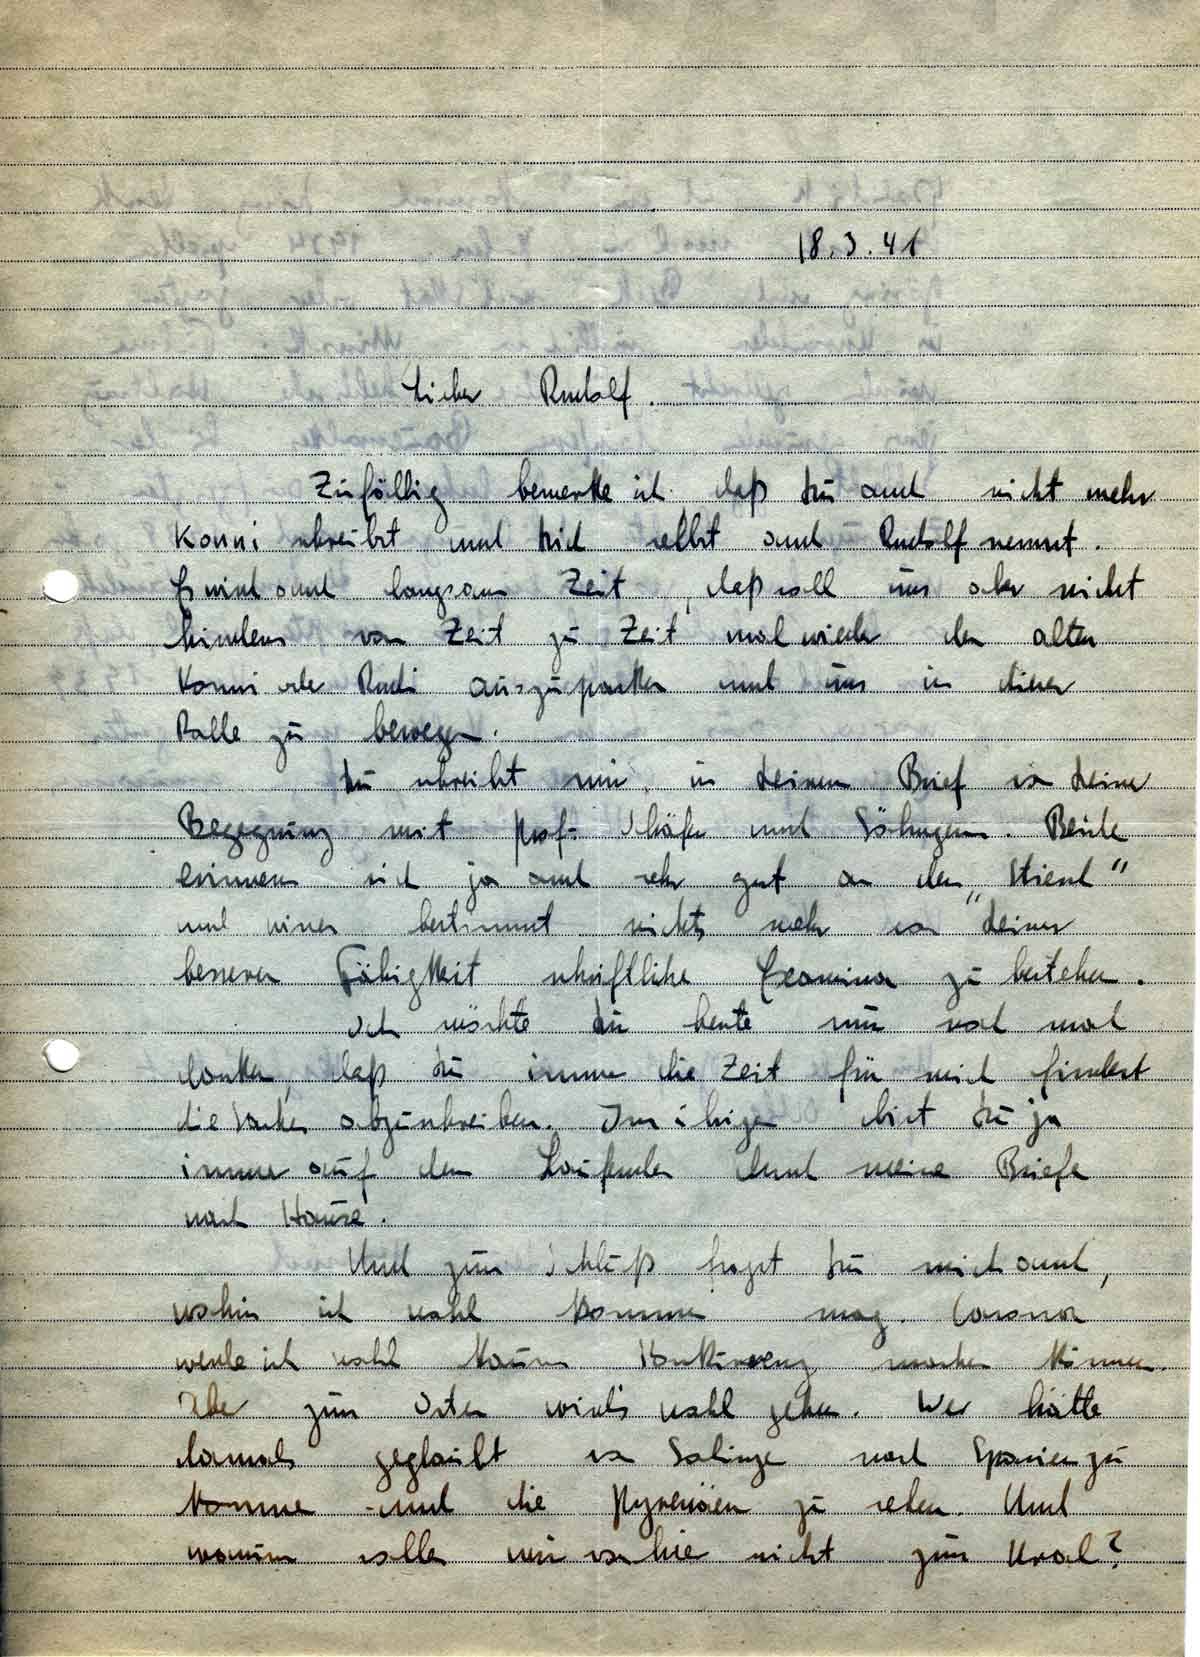 18.3.41
Lieber Rudolf.
Zufällig bemerke ich, daß Du auch nicht mehr
Konni schreibst und Dich selbst auch Rudolf nennst.
Es wird auch langsam Zeit, daß soll uns aber nicht
hindern von Zeit zu Zeit mal wieder den alten
Konni oder Rudi auszupacken und uns in dieser
Rolle zu bewegen.
Du schreibst mir in Deinem Brief von Deiner
Begegnung mit Prof. Schäfer und Söhngen. Beide
erinnern sich ja auch sehr gut an den
und wissen bestimmt nichts mehr von Deiner
besseren Fähigkeit schriftliche Examina zu bestehen.
Ich möchte Dir heute nur noch mal
danken, daß Du immer die Zeit für mich findest
die Sachen abzuschreiben. Im übrigen bist Du ja
immer auf dem Laufenden durch meine Briefe
nach Hause.
Und zum Schluß fragst Du mich auch,
wohin ich wohl komme mag.
werde ich wohl kaum machen können.
Aber zum Osten wird's wohl gehen. Wer hätte
damals geglaubt von Solingen nach Spanien zu
kommen und die Pyrenäen zu sehen. Und
warum sollen wir von hier nicht zum Ural?